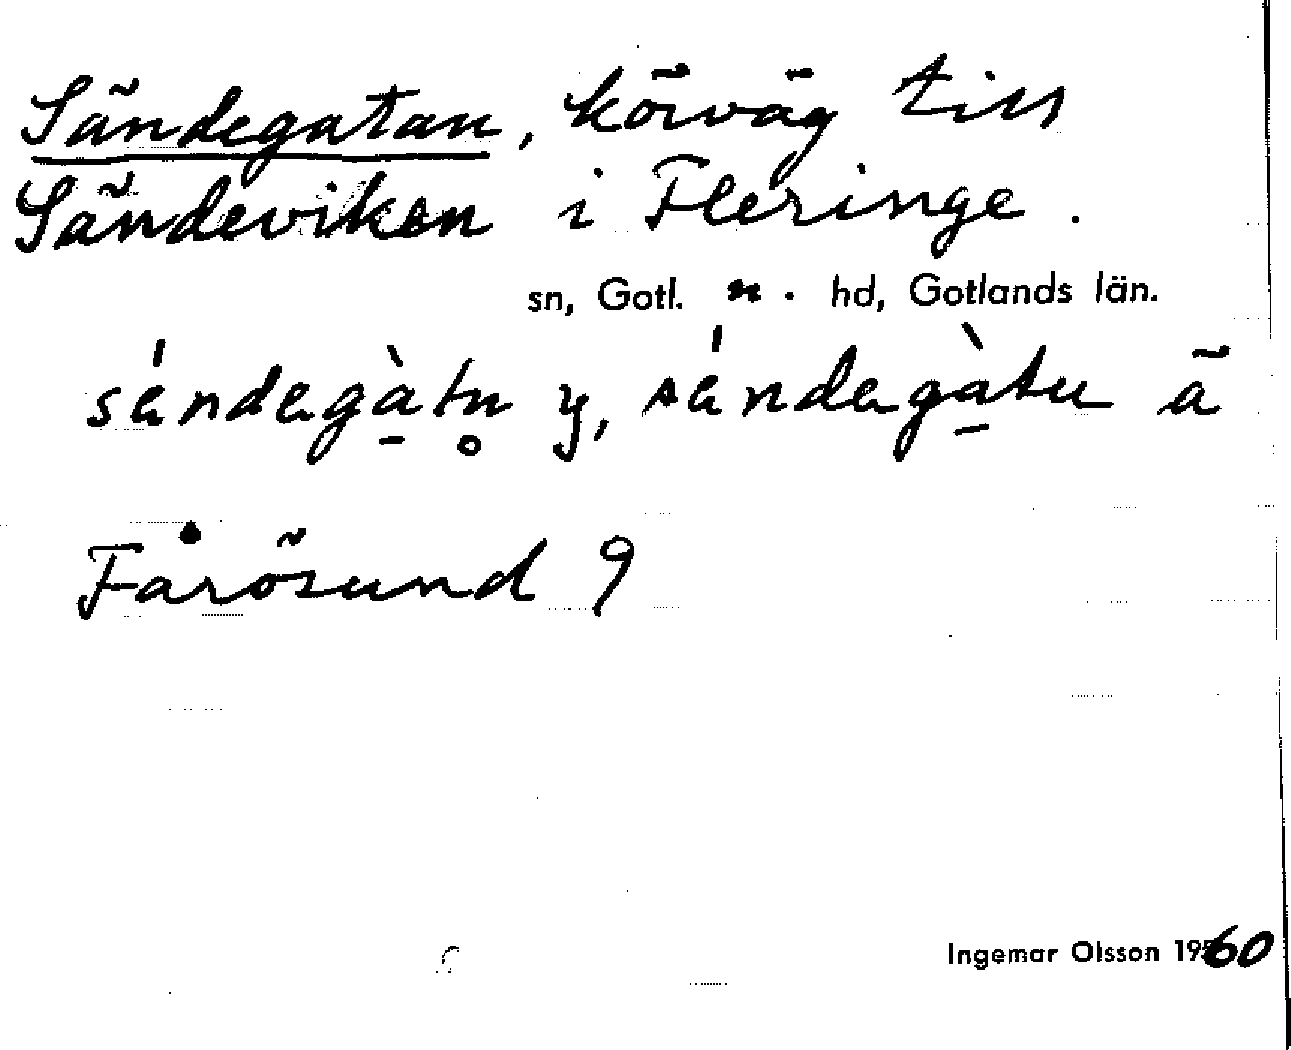 Sändegatan, körväg till
Sändeviken i Fleringe.
sn, Gotl. n. hd, Gotlands län.
sándagàtu̥ y, sándagàtu ä
Fårösund 9
Ingemar Olsson 1960